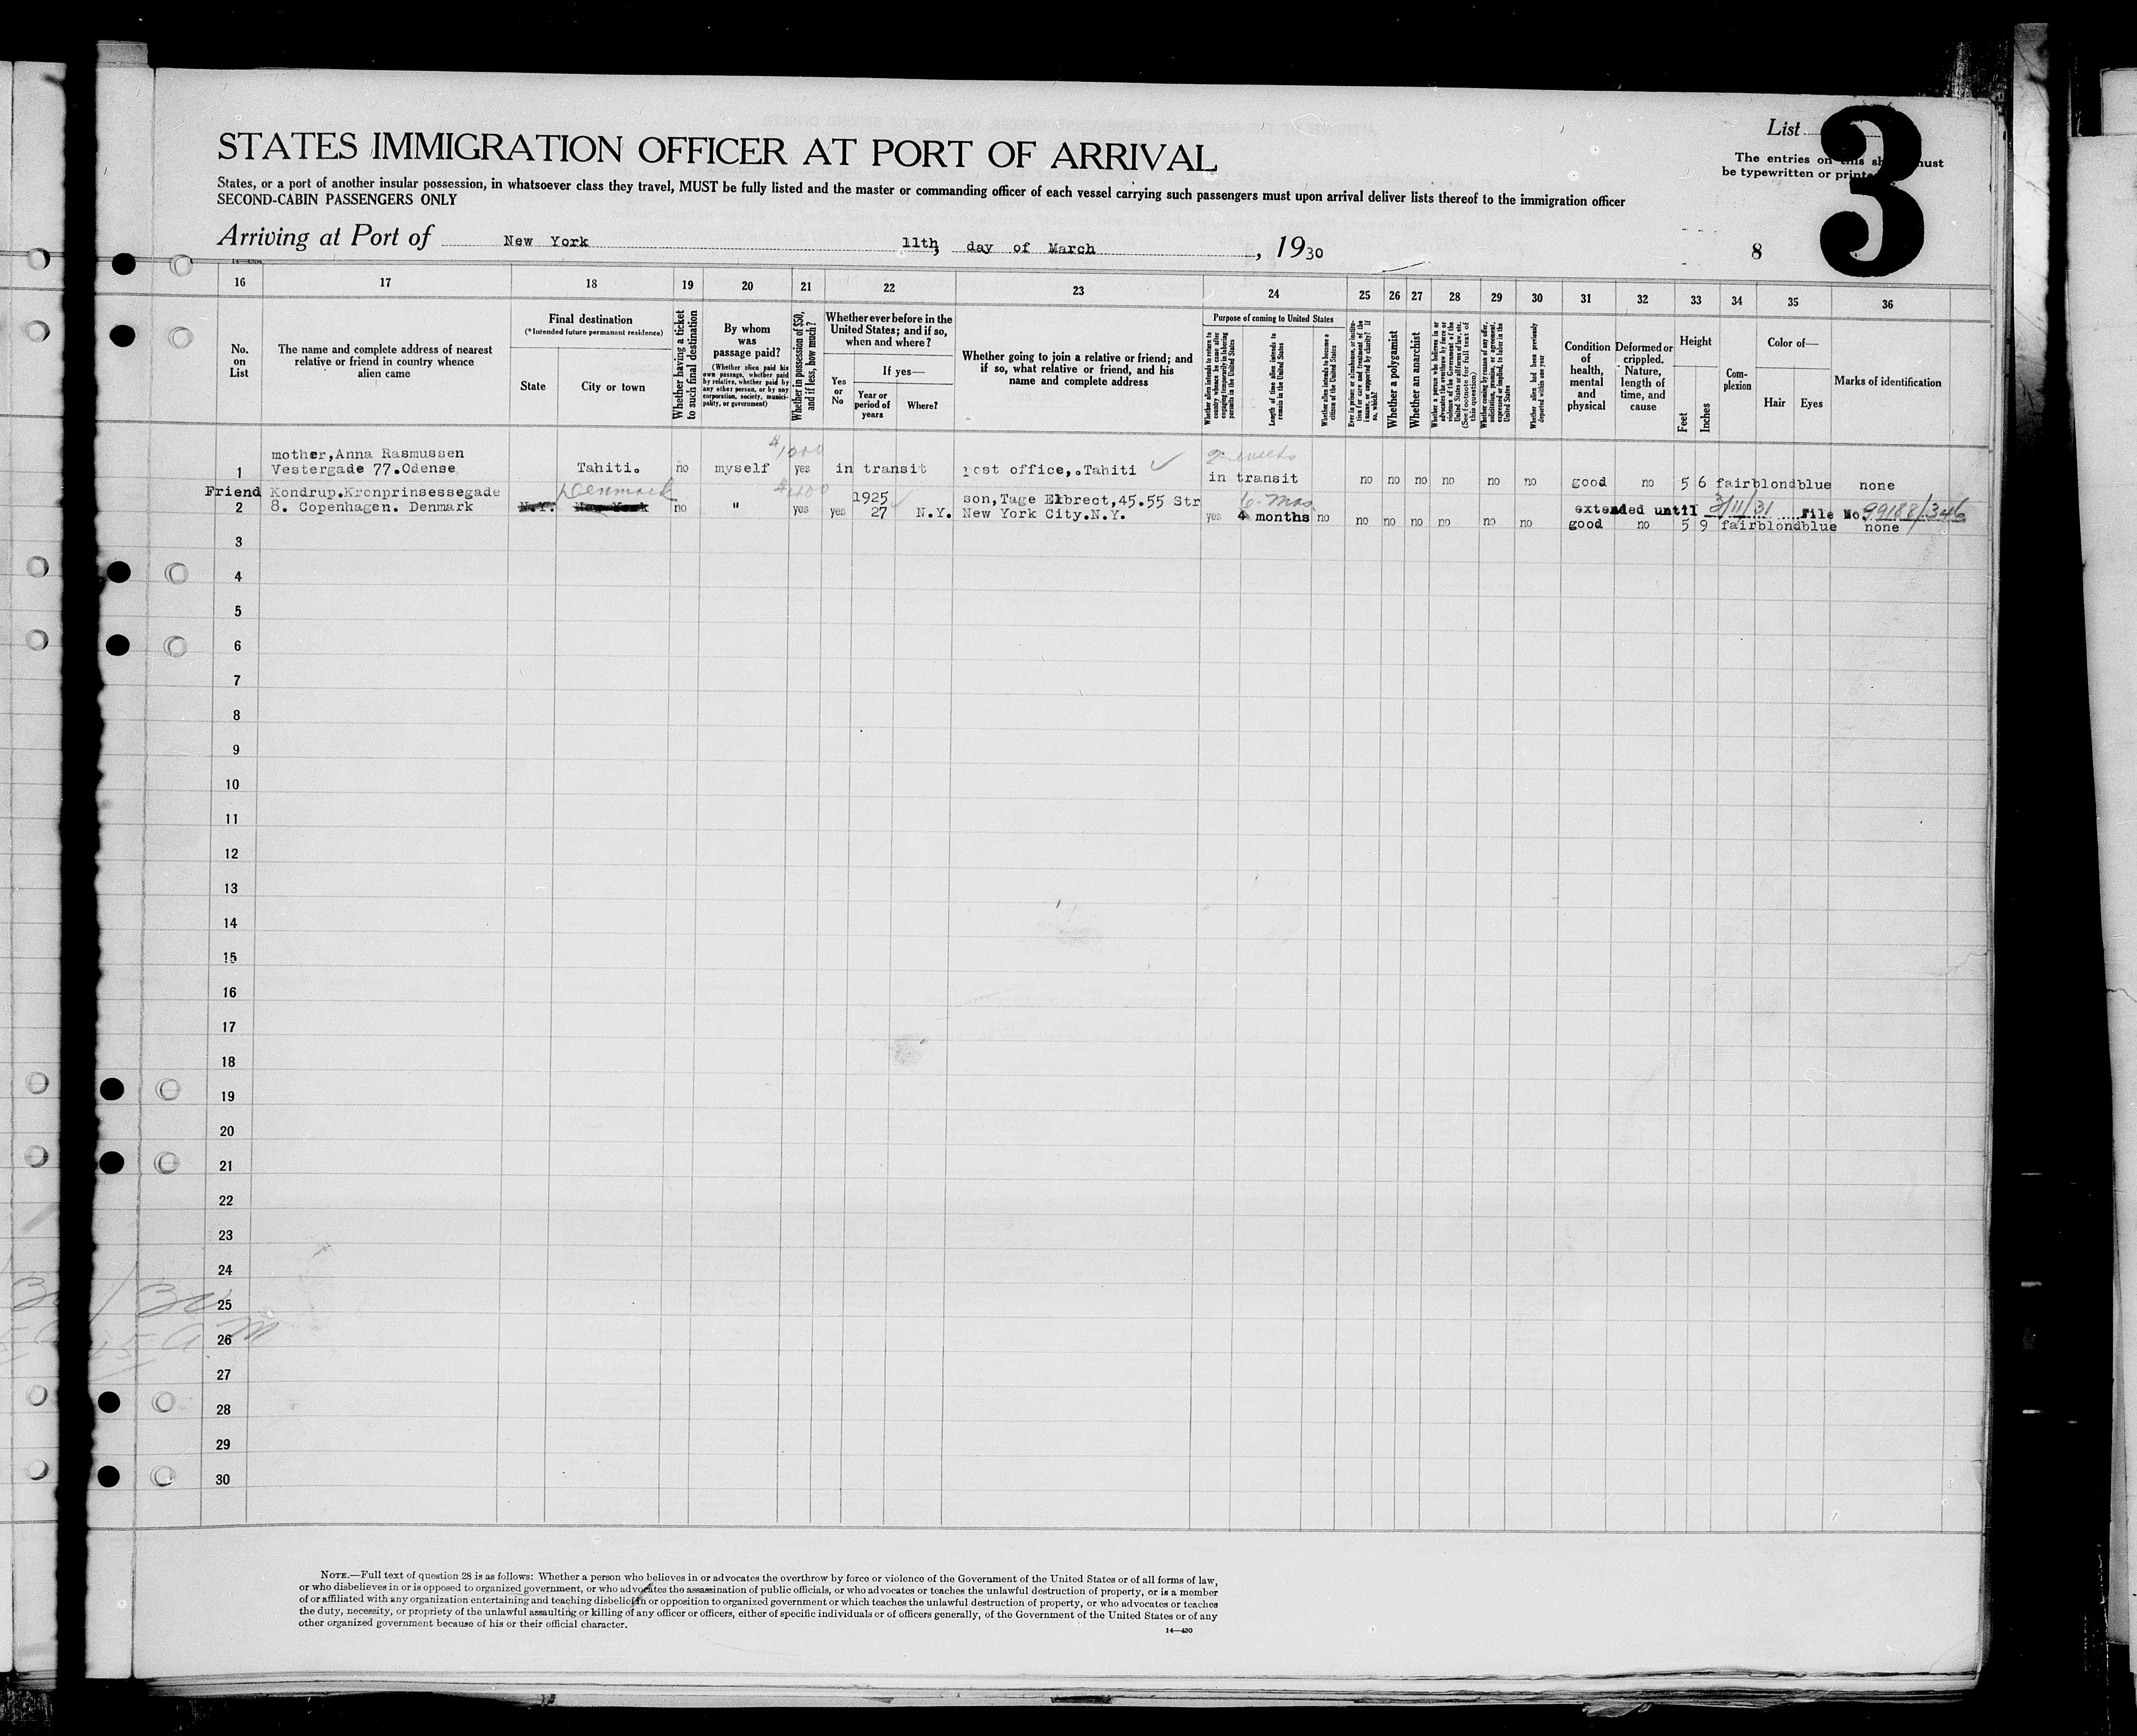 STATES IMMIGRATION OFFICER AT PORT OF ARRIVAL
List
3
The entries on this sh must
be typewritten or printe
States, or a port of another insular possession, in whatsoever class they travel, MUST be fully listed and the master or commanding officer of each vessel carrying such passengers must upon arrival deliver lists thereof to the immigration officer
SECOND-CABIN PASSENGERS ONLY
Arriving at Port of New York 11th, day of March, 1930
8
16 17 18 19 20 21 22 23 24 25 26 27 28 29 30 31 32 33 34 35 36
No. on List
The name and complete address of nearest relative or friend in country whence alien came
Final destination
(*Intended future permanent residence)
State
City or town
Whether having a ticket to such final destination
By whom was passage paid?
(Whether alien paid his own passage, whether paid by relative, whether paid by any other person, or by any corporation, society, municipality, or government)
Whether in possession of $50, and if less, how much?
Whether ever before in the United States; and if so, when and where?
Yes or No
If yes—
Year or period of years
Where?
Whether going to join a relative or friend; and if so, what relative or friend, and his name and complete address
Purpose of coming to United States
Whether alien intends to return to country whence he came after engaging temporarily in laboring pursuits in the United States
Length of time alien intends to remain in the United States
Whether alien intends to become a citizen of the United States
Ever in prison or almshouse, or institution for care and treatment of the insane, or supported by charity? If so, which?
Whether a polygamist
Whether an anarchist
Whether a person who believes in or advocates the overthrow by force or violence of the Government of the United States or all forms of law, etc. (See footnote for full text of this question)
Whether coming by reason of any offer, solicitation, promise, or agreement, expressed or implied, to labor in the United States
Whether alien had been previously deported within one year
Condition of health, mental and physical
Deformed or crippled. Nature, length of time, and cause
Height
Feet
Inches
Complexion
Color of—
Hair
Eyes
Marks of identification
$1000
2 weeks
mother,Anna Rasmussen
1 Vestergade 77.Odense Tahiti. no myself yes in transit post office,.Tahiti in transit no no no no no no good no 5 6 fair blond blue none
Denmark
$400
Friend Kondrup.Kronprinsessegade 1925 son,Tage Elbrect,45.55 Str 6-mos
extended until 3/11/31 File No 99188/346
2 8. Copenhagen. Denmark N.Y. New York no " yes yes 27 N.Y. New York City.N.Y. yes 4 months no no no no no no no good no 5 9 fair blond blue none
3
4
5
6
7
8
9
10
11
12
13
14
15
16
17
18
19
20
21
22
23
24
25
26
27
28
29
30
NOTE.—Full text of question 28 is as follows: Whether a person who believes in or advocates the overthrow by force or violence of the Government of the United States or of all forms of law,
or who disbelieves in or is opposed to organized government, or who advocates the assassination of public officials, or who advocates or teaches the unlawful destruction of property, or is a member
of or affiliated with any organization entertaining and teaching disbelief in or opposition to organized government or which teaches the unlawful destruction of property, or who advocates or teaches
the duty, necessity, or propriety of the unlawful assaulting or killing of any officer or officers, either of specific individuals or of officers generally, of the Government of the United States or of any
other organized government because of his or their official character.
14—430